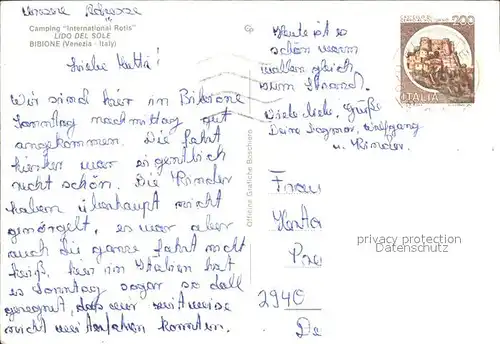 Unsere Adresse
Camping "International Rotis"
LIDO DEL SOLE
BIBIONE (Venezia - Italy)
Liebe Mutti!
Wir sind hier in Bibione
Sonntag nachmittag gut
angekommen. Die Fahrt
hierher war eigentlich
nicht schön. Die Kinder
haben überhaupt nicht
genörgelt, es war aber
auch die ganze Fahrt nicht
heiß, hier in Italien hat
es Sonntag sogar so doll
geregnet, daß wir zeitweise
nicht weiterfahren konnten.
Officine Grafiche Boschiera
Heute ist es
schön warm
wollen gleich
zum Strand.
Viele liebe Grüße
Deine Dagmar, Wolfgang
u. Kinder.
200
ITALIA
Frau
Herta
privacy protection
Datenschutz
2940